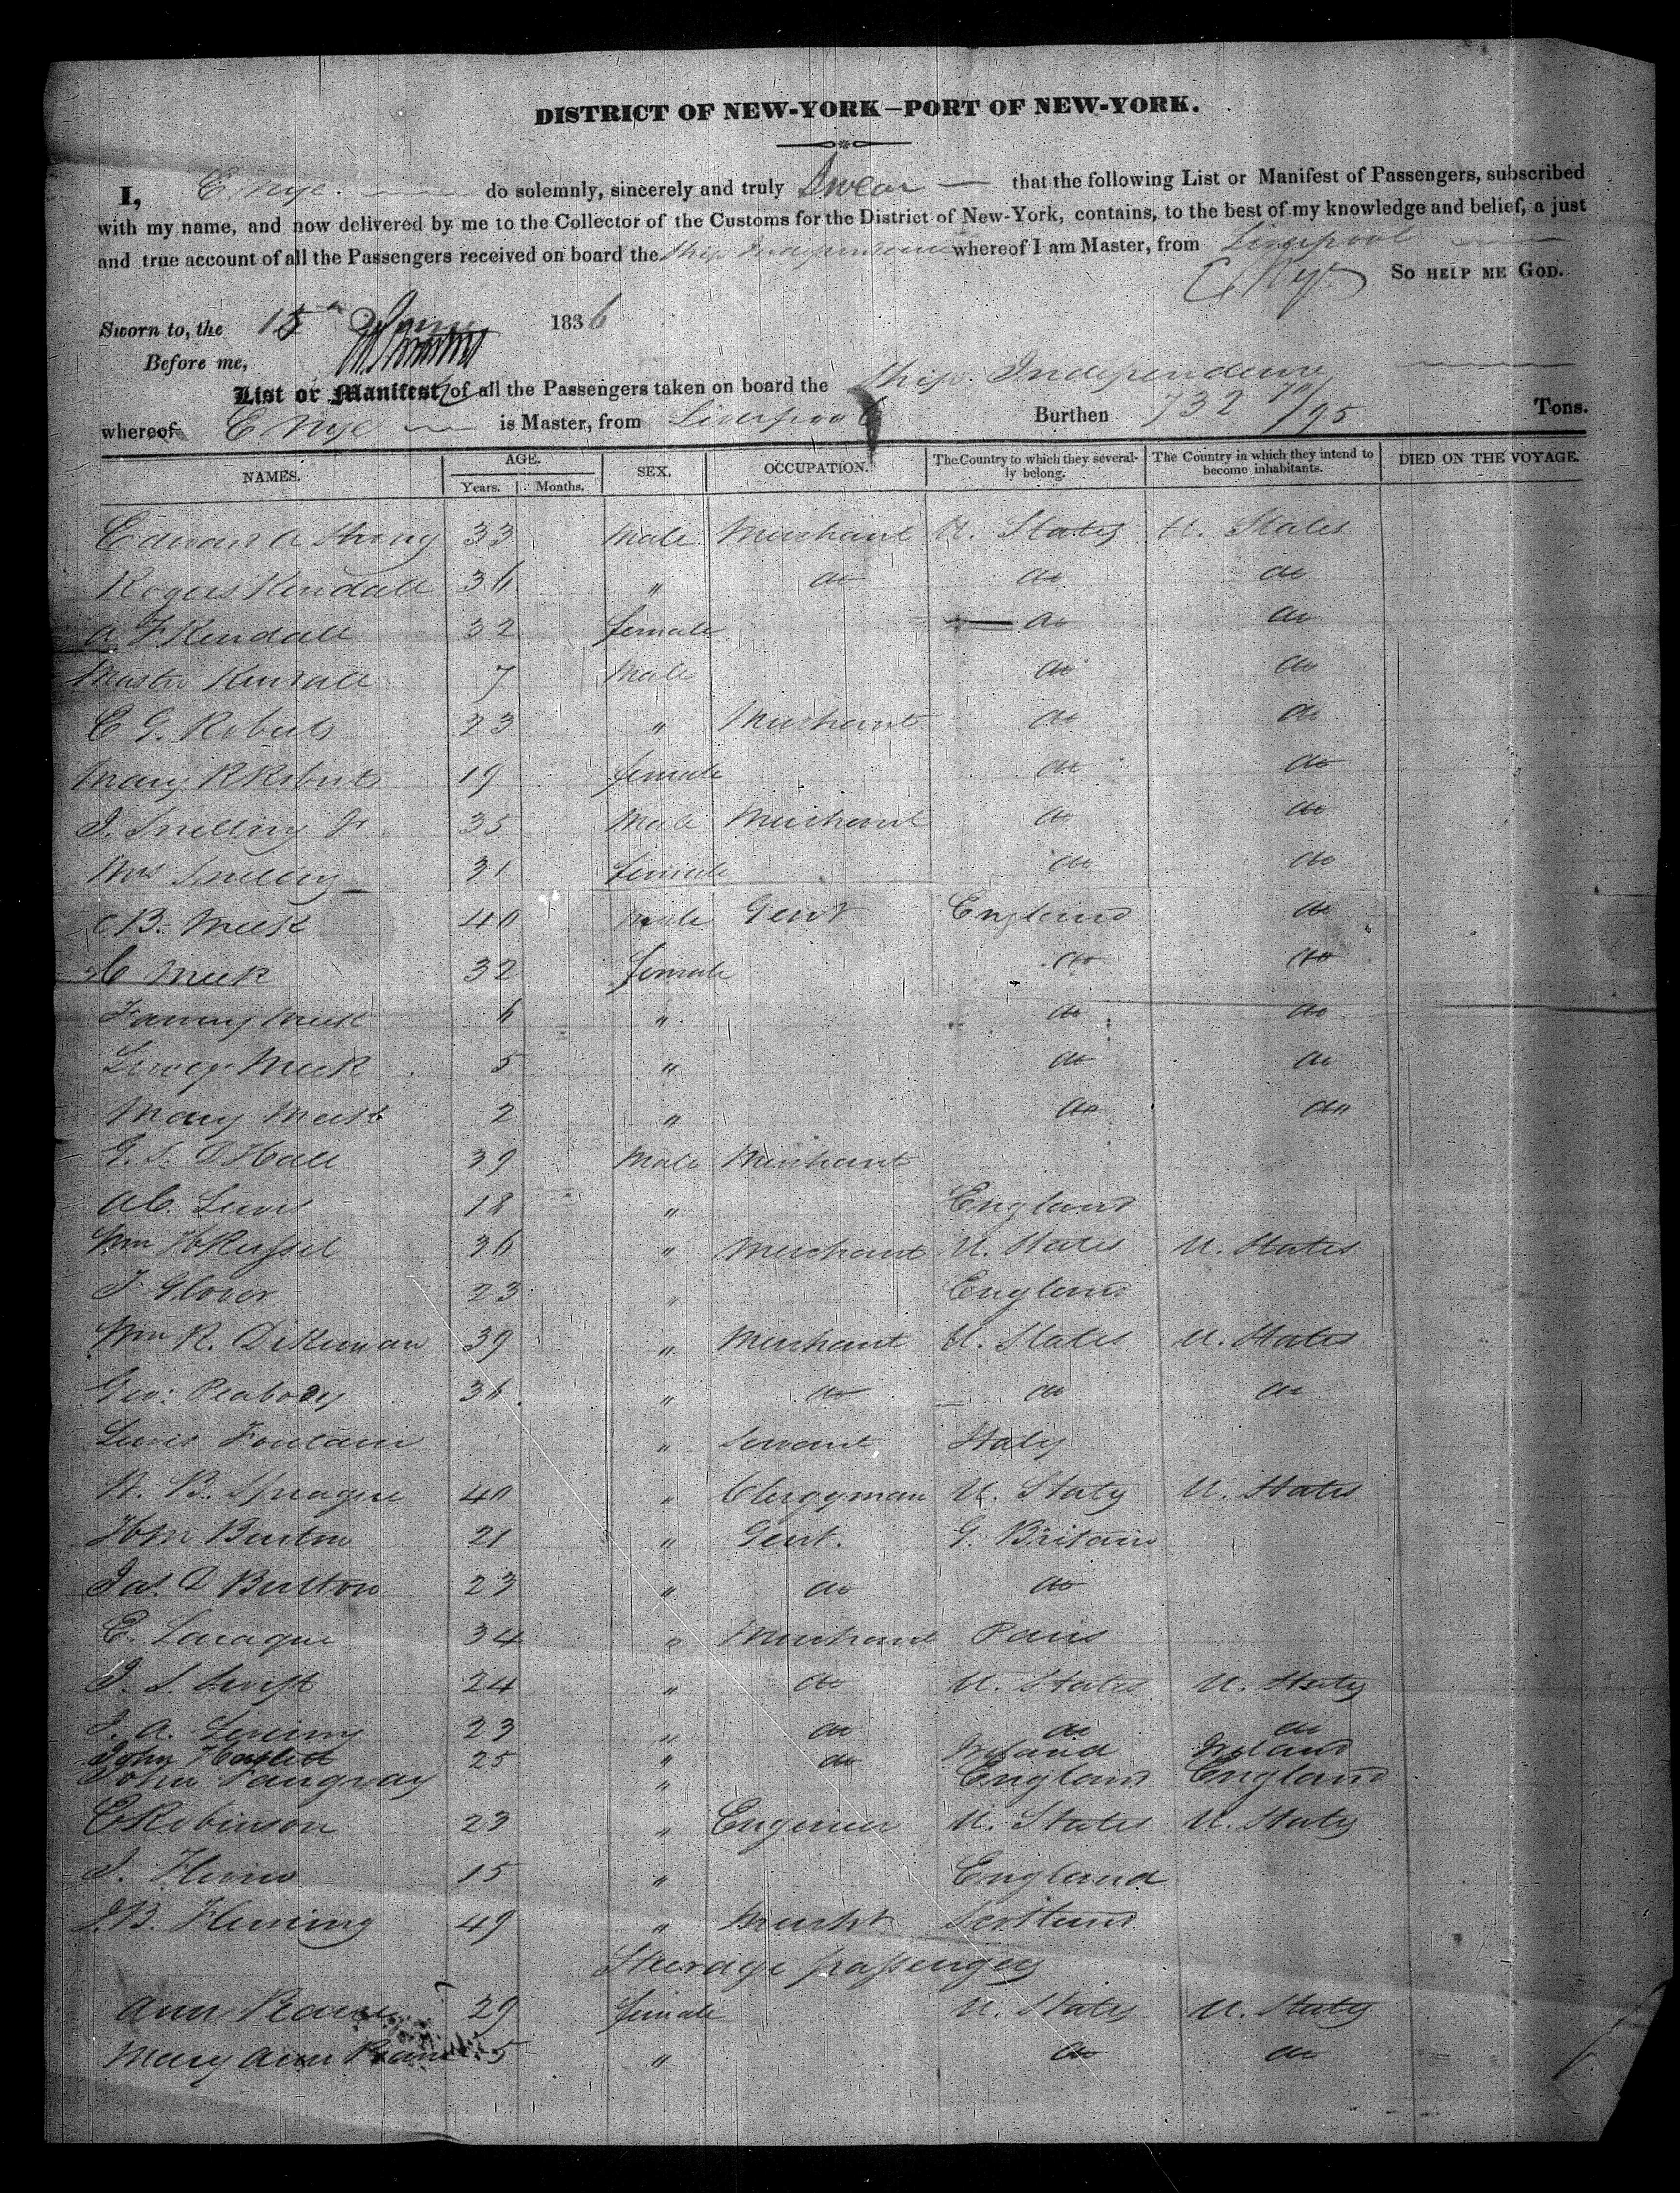 DISTRICT OF NEW-YORK—PORT OF NEW-YORK.
I, E Nye. do solemnly, sincerely and truly Swear that the following List or Manifest of Passengers, subscribed
with my name, and now delivered by me to the Collector of the Customs for the District of New-York, contains, to the best of my knowledge and belief, a just
and true account of all the Passengers received on board the Ship Independence whereof I am Master, from Liverpool
E Nye So HELP ME GOD.
Sworn to, the 15 1836
Before me,
List or Manifest of all the Passengers taken on board the Ship Independence
whereof E Nye is Master, from Liverpool Burthen 732 /95 Tons.
NAMES. AGE. SEX. OCCUPATION. The Country to which they severally belong. The Country in which they intend to become inhabitants. DIED ON THE VOYAGE.
Years. Months.
Edward A Strong 33 Male Merchant U. States U. States
Rogers Kendall 36 " do do do
A F Kendall 32 female do do
Master Kendall 7 Male do do
E G. Roberts 23 " Merchant do do
Mary R Roberts 19 female do do
J. Snelling Jr. 35 Male Merchant do do
Mrs Snelling 31 female do do
B. Meek 40 Male Gent England do
C Meek 32 female do do
Fanny Meek 6 " do do
Meek 5 " do do
Mary Meek 2 " do do
G. S. D Hall 39 Male Merchant
A C. Lewis 18 " England
Wm H Russel 36 " Merchant U. States U. States
J. Glover 23 " England
Wm R. Dikeman 39 " Merchant U. States U. States
Geo: Peabody 36 " do do do
Lewis Fontain " Servant Italy
W. B. Sprague 40 " Clergyman U. States U. States
Burton 21 " Gent. G. Britain
Jas. D Burton 23 " do do
E. 34 " Merchant Paris
J. S. Swift 24 " do U. States U. States
J. A. 23 " do do do
John Haslett 25 " do Ireland Ireland
John Tanguay " England England
E Robinson 23 " Engineer U. States U. States
J. 15 " England
J. B. Fleming 49 " Mercht Scotland
Steerage passengers
Ann Pearce 29 female U. States U. States
Mary Ann 5 " do do